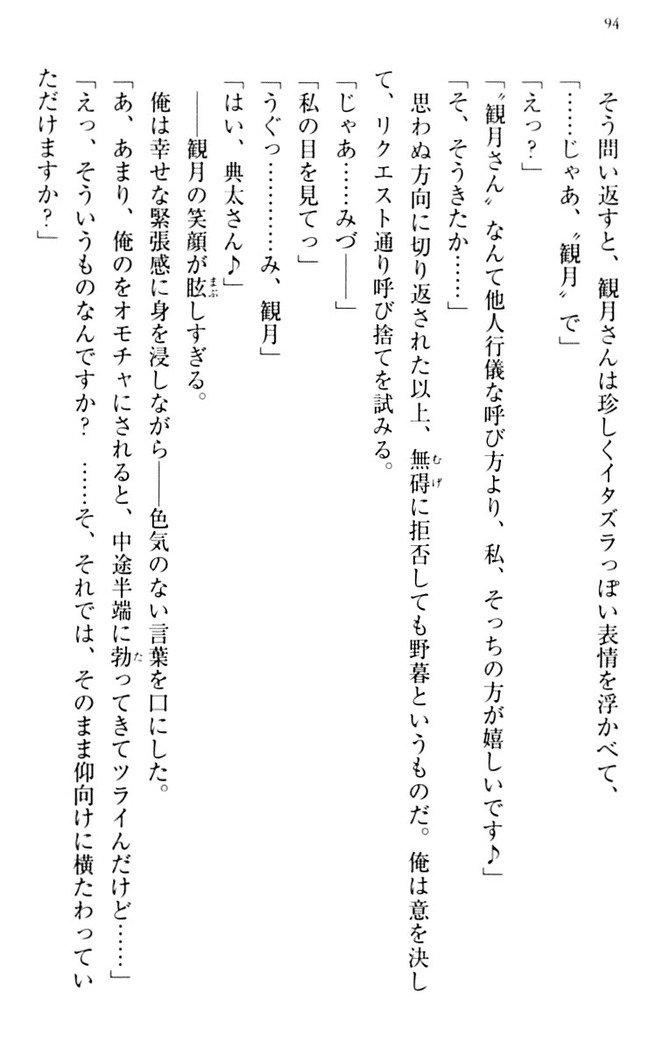 94
そう問い返すと、観月さんは珍しくイタズラっぽい表情を浮かべて、
「……じゃあ、〝観月〟で」
「えっ？」
「〝観月さん〟なんて他人行儀な呼び方より、私、そっちの方が嬉しいです♪」
「そ、そうきたか……」
思わぬ方向に切り返された以上、無碍に拒否しても野暮というものだ。俺は意を決し
て、リクエスト通り呼び捨てを試みる。
「じゃあ……みづ――」
「私の目を見てっ」
「うぐっ…………み、観月」
「はい、典太さん♪」
――観月の笑顔が眩しすぎる。
俺は幸せな緊張感に身を浸しながら――色気のない言葉を口にした。
「あ、あまり、俺のをオモチャにされると、中途半端に勃ってきてツライんだけど……」
「えっ、そういうものなんですか？　……そ、それでは、そのまま仰向けに横たわってい
ただけますか？」